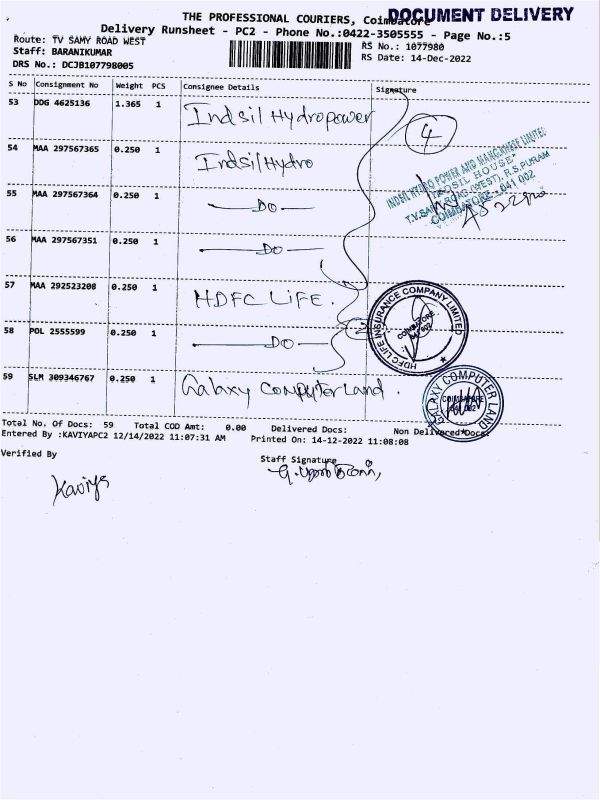 THE PROFESSIONAL COURIERS, Coimbatore
DOCUMENT DELIVERY
Delivery Runsheet - PC2 - Phone No.:0422-3505555 - Page No.:5
Route: TV SAMY ROAD WEST
RS No.: 1077980
Staff: BARANIKUMAR
RS Date: 14-Dec-2022
DRS No.: DCJB107798005
S No Consignment No Weight PCS Consignee Details Signature
53 DDG 4625136 1.365 1 Indsil Hydropower
4
54 MAA 297567365 0.250 1 Indsil Hydro
INDSIL HYDRO POWER AND MANGANESE LIMITED
"INDSIL HOUSE"
T.V.SAMY ROAD (WEST), R.S.PURAM
COIMBATORE - 641 002
55 MAA 297567364 0.250 1 — DO —
56 MAA 297567351 0.250 1 — DO —
57 MAA 292523208 0.250 1 HDFC LIFE.
HDFC LIFE INSURANCE COMPANY LIMITED
COIMBATORE
641 002
58 POL 2555599 0.250 1 — DO —
2
59 SLM 309346767 0.250 1 Galaxy Computer Land.
GALAXY COMPUTER LAND
COIMBATORE
641 002
Total No. Of Docs: 59 Total COD Amt: 0.00 Delivered Docs: Non Delivered Docs:
Entered By :KAVIYAPC2 12/14/2022 11:07:31 AM Printed On: 14-12-2022 11:08:08
Verified By Staff Signature
Kaviya